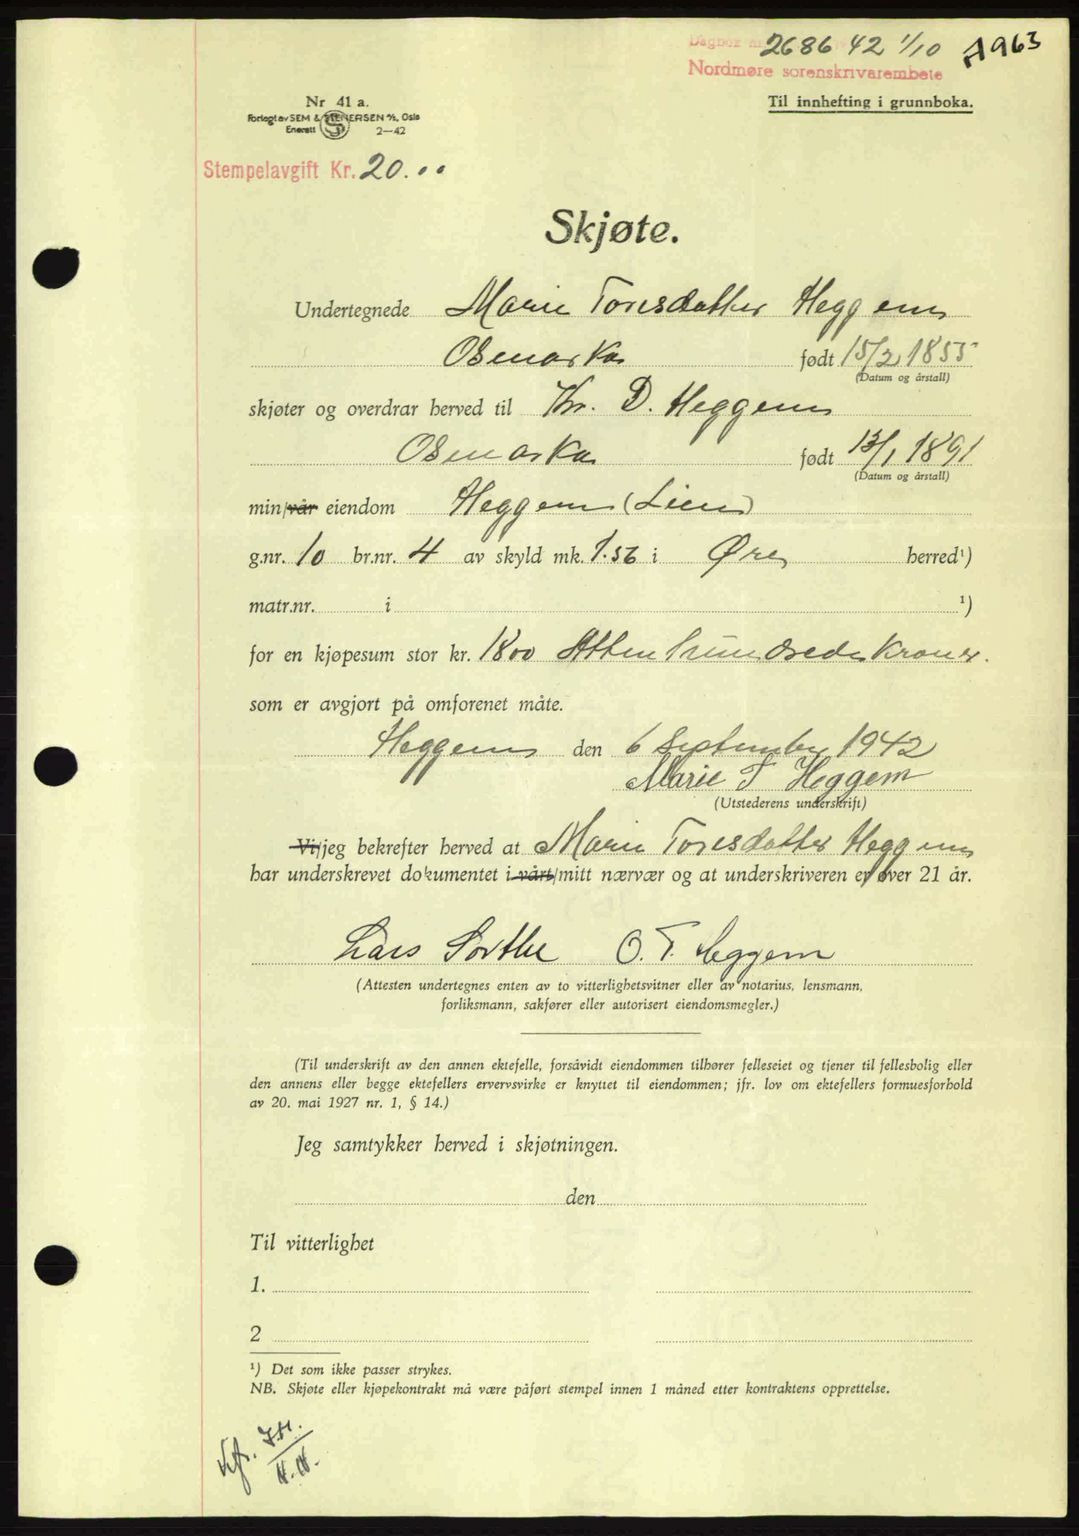 2686 42 1/10 A963
Nordmøre sorenskrivarembete
Til innhefting i grunnboka.
Nr 41 a.
Forlagt av SEM & STENERSEN A/S, Oslo
Enerett 2-42
Stempelavgift Kr. 20.00
Skjøte.
Undertegnede Marie Toresdatter Heggem
Osmarka født 15/2 1855
(Datum og årstall)
skjøter og overdrar herved til Kr. D. Heggem
Osmarka født 13/1 1891
(Datum og årstall)
min/vår eiendom Heggem (Lien)
g.nr. 10 br.nr. 4 av skyld mk. 1.56 i Øre herred¹)
matr.nr. i ¹)
for en kjøpesum stor kr. 1800 Atten hundrede kroner.
som er avgjort på omforenet måte.
Heggem den 6 September 1942
Marie T Heggem
(Utstederens underskrift)
Vi/jeg bekrefter herved at Marie Toresdatter Heggem
har underskrevet dokumentet i vårt/mitt nærvær og at underskriveren er over 21 år.
Lars Sorthe O. T. Heggem
(Attesten undertegnes enten av to vitterlighetsvitner eller av notarius, lensmann,
forliksmann, sakfører eller autorisert eiendomsmegler.)
(Til underskrift av den annen ektefelle, forsåvidt eiendommen tilhører felleseiet og tjener til fellesbolig eller
den annens eller begge ektefellers ervervsvirke er knyttet til eiendommen; jfr. lov om ektefellers formuesforhold
av 20. mai 1927 nr. 1, § 14.)
Jeg samtykker herved i skjøtningen.
den
Til vitterlighet
1.
2
¹) Det som ikke passer strykes.
NB. Skjøte eller kjøpekontrakt må være påført stempel innen 1 måned etter kontraktens opprettelse.